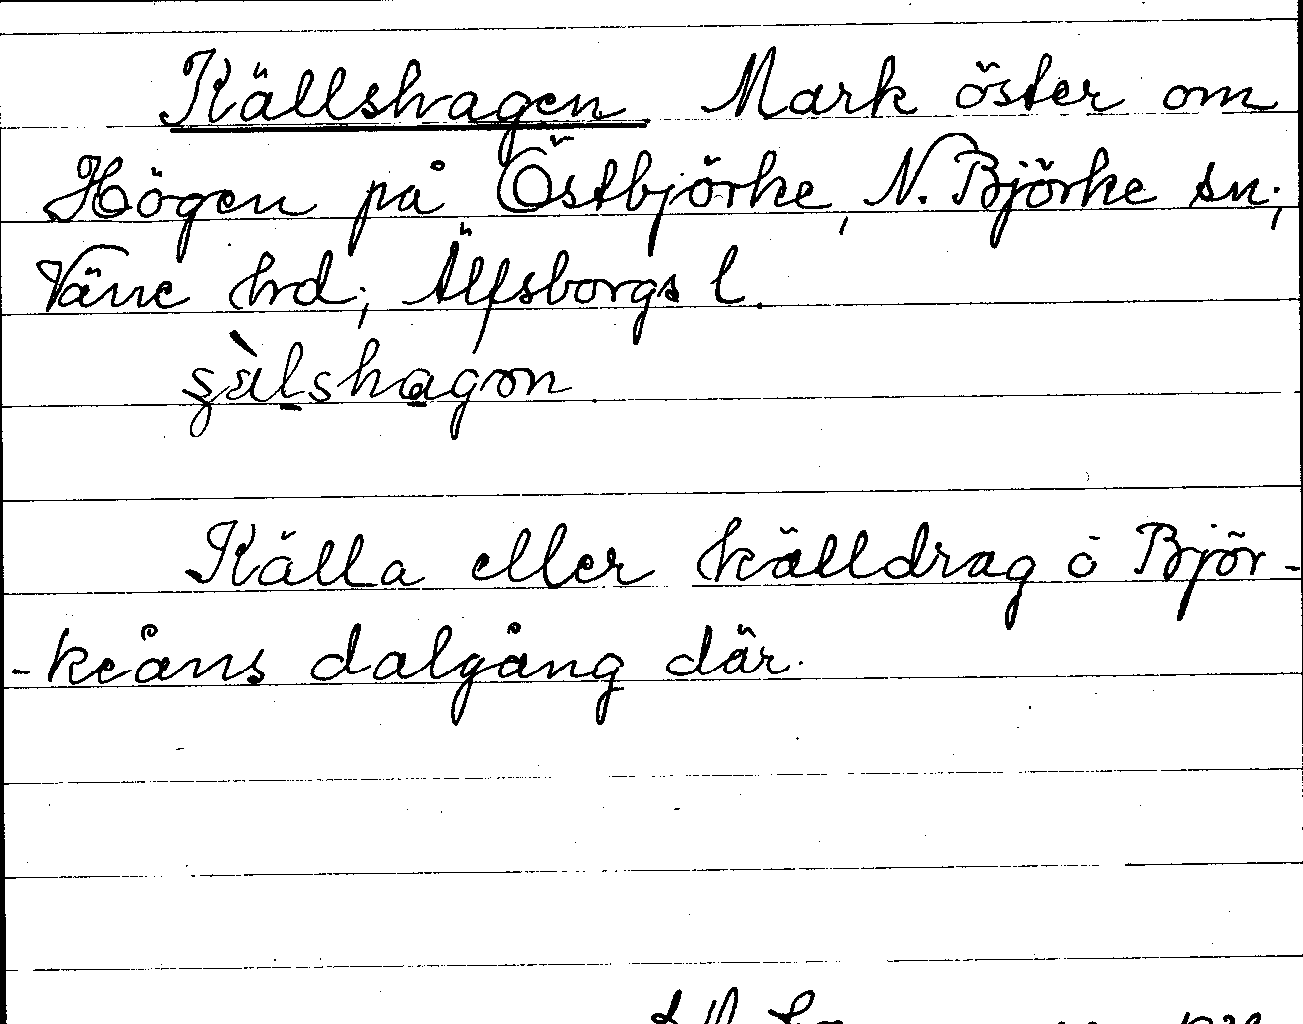 Källshagen. Mark öster om
Högen på Östbjörke, N. Björke sn;
Väne hrd; Älfsborgs l.
Källa eller källdrag ö Björ-
-keåns dalgång där.